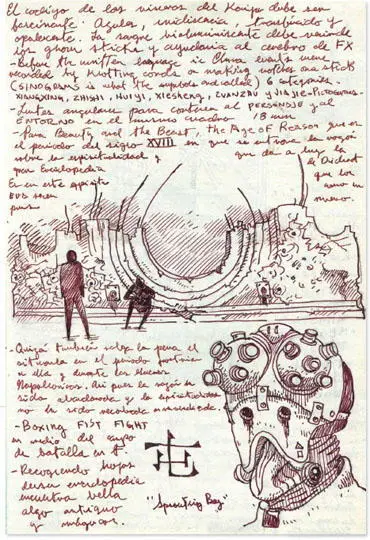 El codigo de las visceras del Kaiju debe ser
fascinante: Azules, iridiscencia, translucido y
opalescente. La sangre bioluminiscente debe
los ghom stricke y ayudaria al cerebro de FX
- Before the written language in China events were
recorded by knotting cords or making notches on a stick
(SINOGRAMS is what the symbols are called) 6 categories.
XIANGXING, ZHISHI, HUIYI, XIESHENG, ZUANZHU y JIAJIE-Pictograms.
- Lentes angulares para contener al PERSONAJE y al
ENTORNO en el mismo cuadro 18 mm
- Para Beauty and the Beast, the Age of Reason que es
el periodo del siglo XVIII en que se entrona la razón
sobre la espiritualidad y que da a luz la
gran Enciclopedia Diderot
Es en este que los
en
pues nuevo.
- Quizá también valga la pena el
situarla en el periodo posterior
a ella y durante las Guerras
Napoleónicas. Así pues la razón ha
sido abandonada y la espiritualidad
no ha sido recobrada
- BOXING FIST FIGHT
en medio del campo
de batalla en
- Recogiendo hojas
de su enciclopedia
encuentra bella
algo antiguo
y
"Spouting Bag"